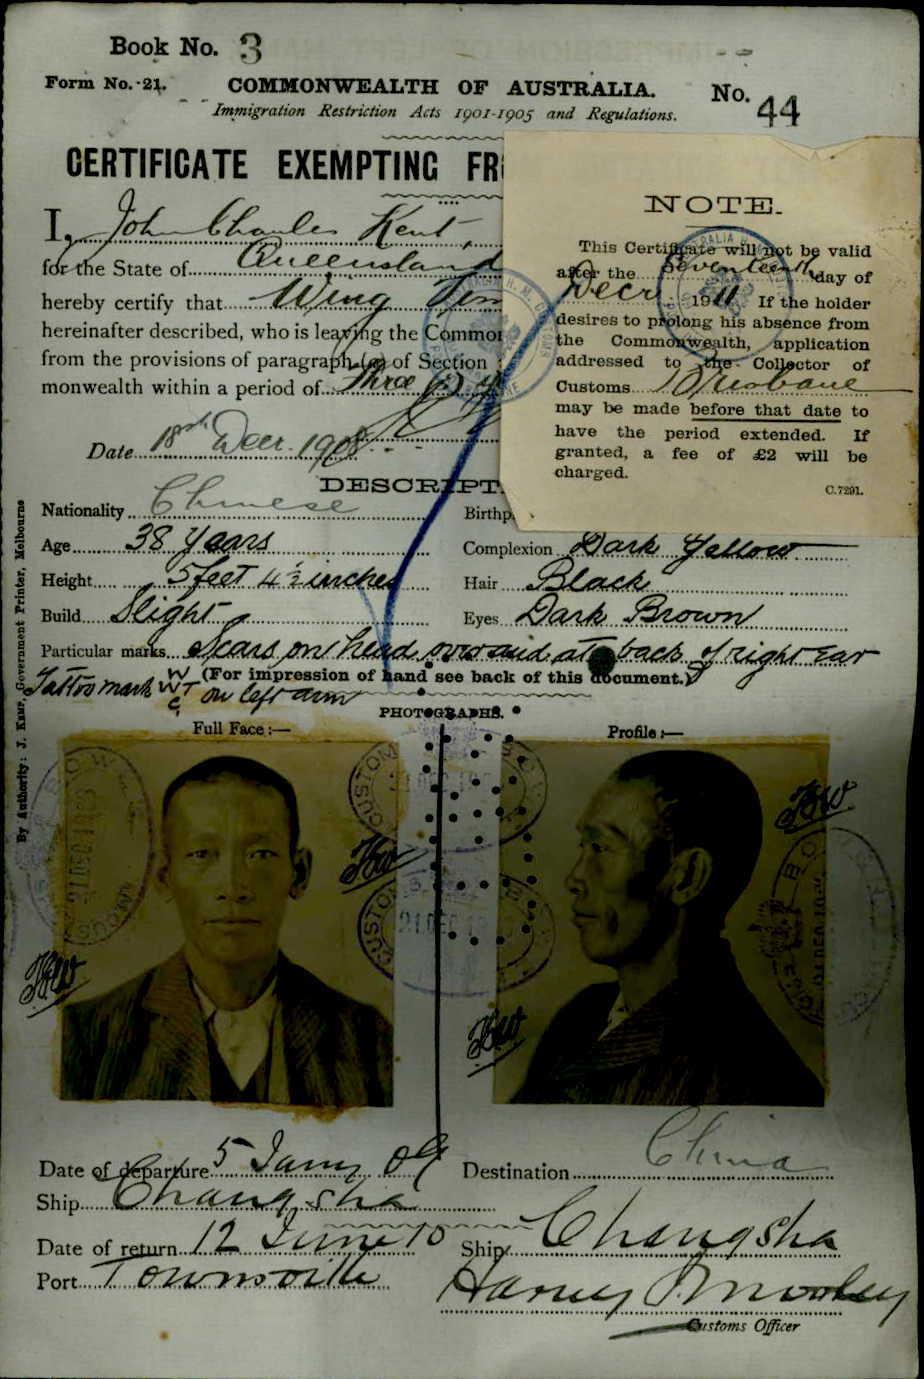 Book No. 3
Form No. 21.
COMMONWEALTH OF AUSTRALIA.
No. 44
Immigration Restriction Acts 1901-1905 and Regulations.
CERTIFICATE EXEMPTING FRO
I, John Charles Kent,
for the State of Queensland
hereby certify that Wing
hereinafter described, who is leaving the Common
from the provisions of paragraph (m) of Section
monwealth within a period of Three (3) y
Date 18th Decr. 1908
NOTE.
This Certificate will not be valid
after the Seventeenth day of
Decr. 1911 If the holder
desires to prolong his absence from
the Commonwealth, application
addressed to the Collector of
Customs Brisbane
may be made before that date to
have the period extended. If
granted, a fee of £2 will be
charged.
C.7291.
DESCRIPT
Nationality Chinese
Birthp
Age 38 Years
Complexion Dark Yellow
Height 5 feet 4½ inches
Hair Black
Build Slight
Eyes Dark Brown
Particular marks Scars on head and at back of right ear
Tattoo mark W WT C on left arm
(For impression of hand see back of this document.)
PHOTOGRAPHS.
Full Face :—
Profile :—
By Authority: J. Kemp, Government Printer, Melbourne
Date of departure 5 Jany 09
Destination China
Ship Changsha
Date of return 12 June 10
Ship Changsha
Port Townsville
Customs Officer